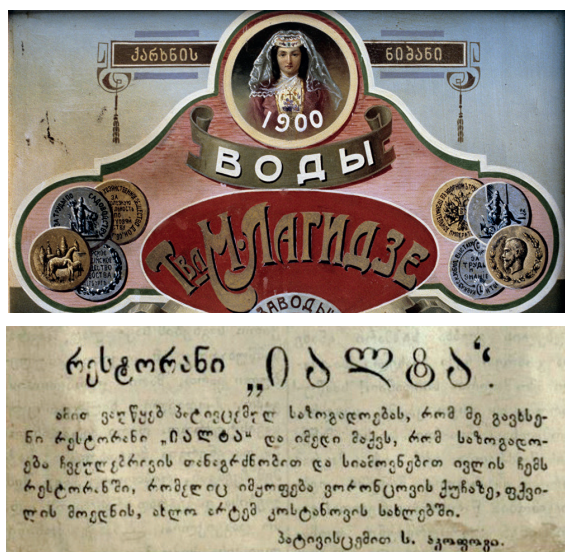 ქარხნის ნიშანი
1900
ВОДЫ
Тва М. ЛАГИДЗЕ
ЗАВОДЫ
რესტორანი „იალტა“.
ამით ვაუწყებ პატივცემულ საზოგადოებას, რომ მე გავხსე-
ნი რესტორანი „იალტა“ და იმედი მაქვს, რომ საზოგადო-
ება ჩვეულებრივის თანაგრძნობით და სიამოვნებით ივლის ჩემს
რესტორანში, რომელიც იმყოფება ვორონცოვის ქუჩაზე, ფქვი-
ლის მოედნის, ახლო არტემ კოსტანოვის სახლებში.
პატივისცემით ს. აკოფოვი.